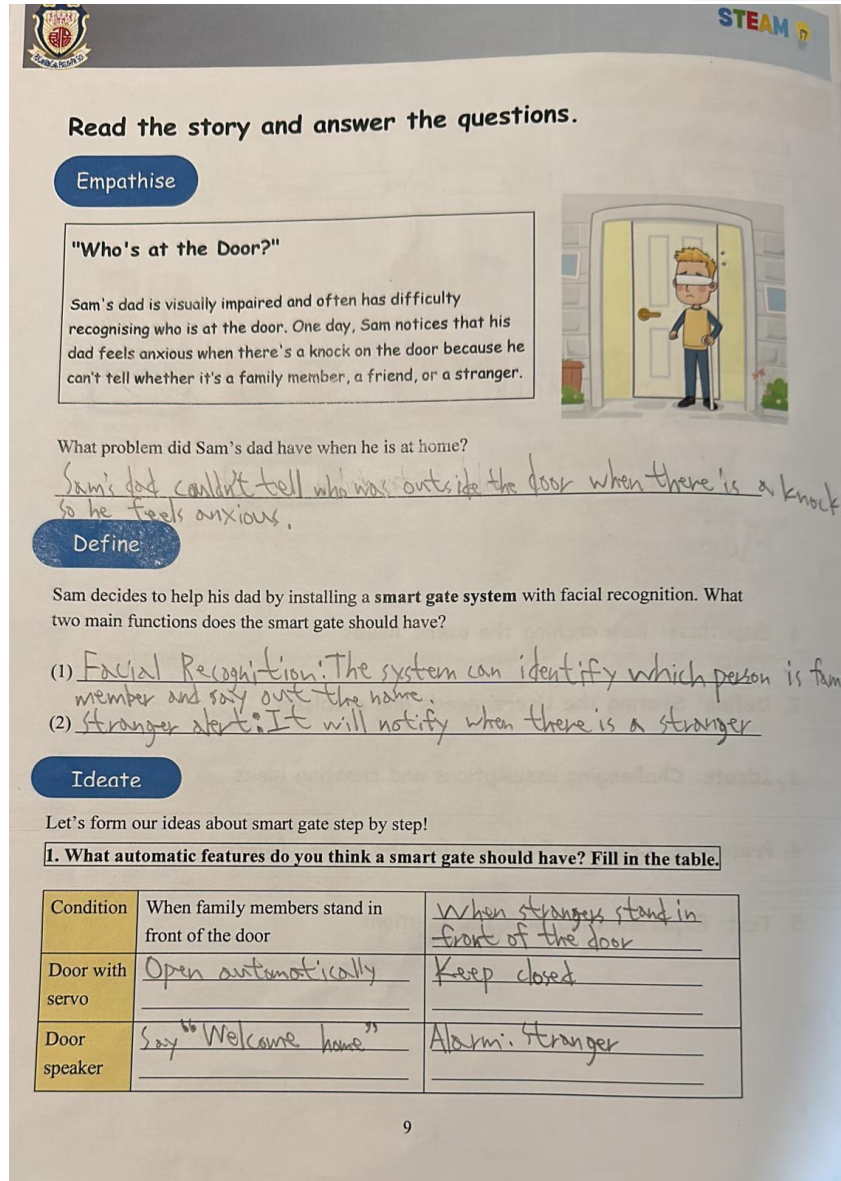 STEAM
Read the story and answer the questions.
Empathise
"Who's at the Door?"
Sam's dad is visually impaired and often has difficulty
recognising who is at the door. One day, Sam notices that his
dad feels anxious when there's a knock on the door because he
can't tell whether it's a family member, a friend, or a stranger.
What problem did Sam's dad have when he is at home?
Sam's dad couldn't tell who was outside the door when there is a knock
so he feels anxious.
Define
Sam decides to help his dad by installing a smart gate system with facial recognition. What
two main functions does the smart gate should have?
(1) Facial Recognition: The system can identify which person is fam
member and say out the name.
(2) Stranger alert: It will notify when there is a stranger
Ideate
Let's form our ideas about smart gate step by step!
1. What automatic features do you think a smart gate should have? Fill in the table.
Condition When family members stand in When strangers stand in
front of the door front of the door
Door with Open automatically Keep closed
servo
Door Say "Welcome home" Alarm: Stranger
speaker
9